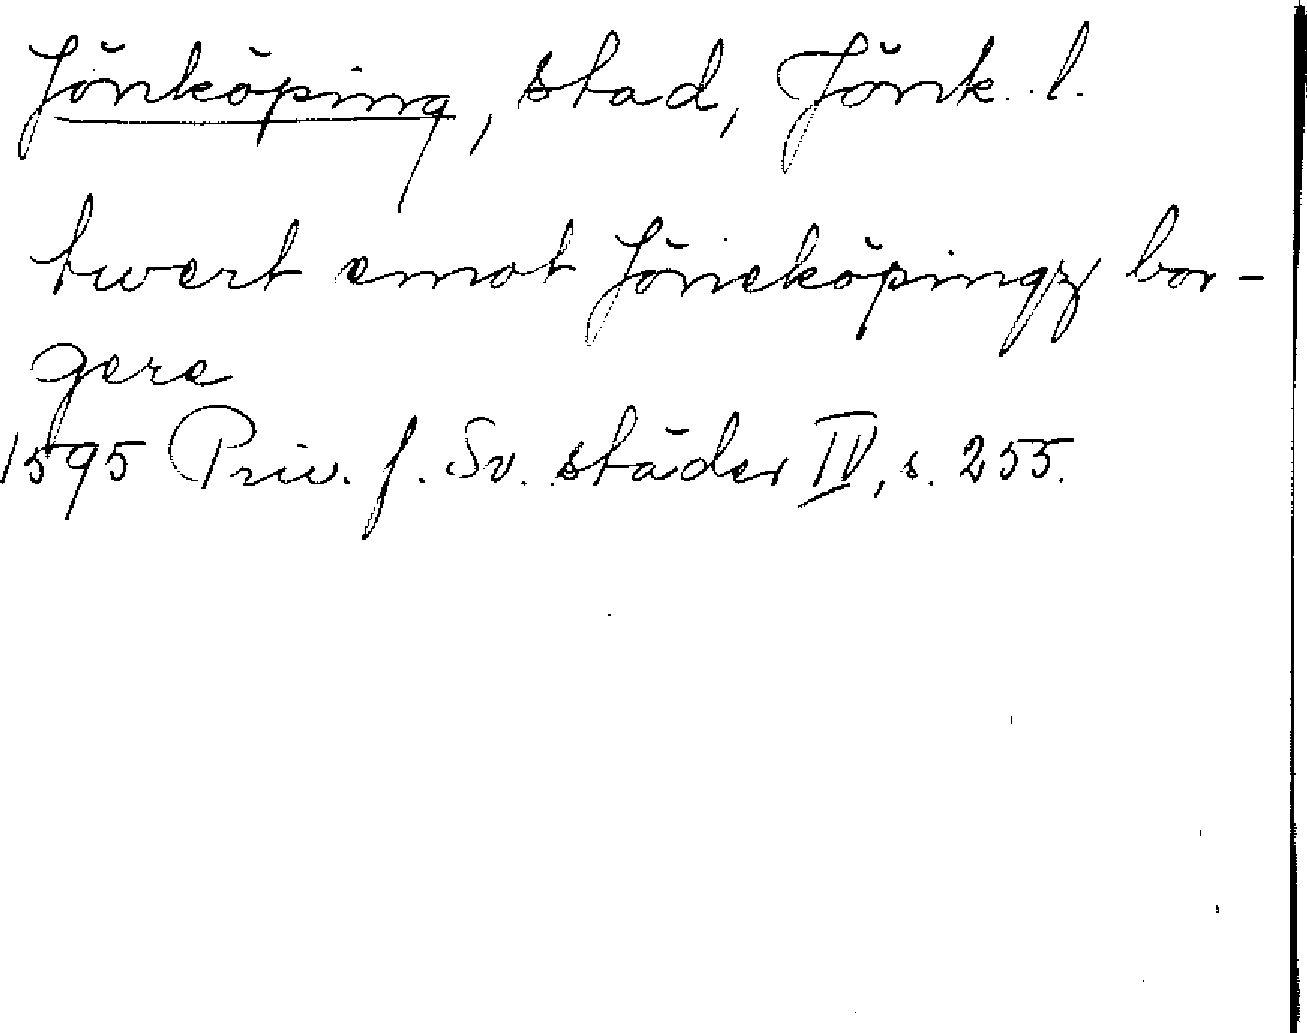 Jönköping, stad, Jönk. l.
twert emot Jöneköpingz bor-
gere
1595 Priv. f. Sv. städer IV, s. 255.